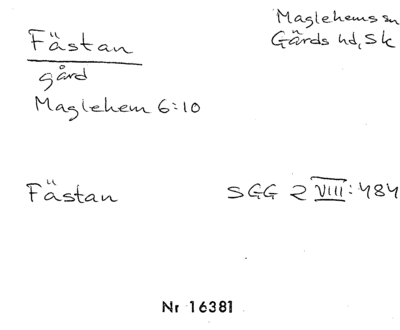 Maglehems sn
Fästan
Gärds hd, Sk
gård
Maglehem 6:10
Fästan
SGG 2 VIII:484
Nr 16381